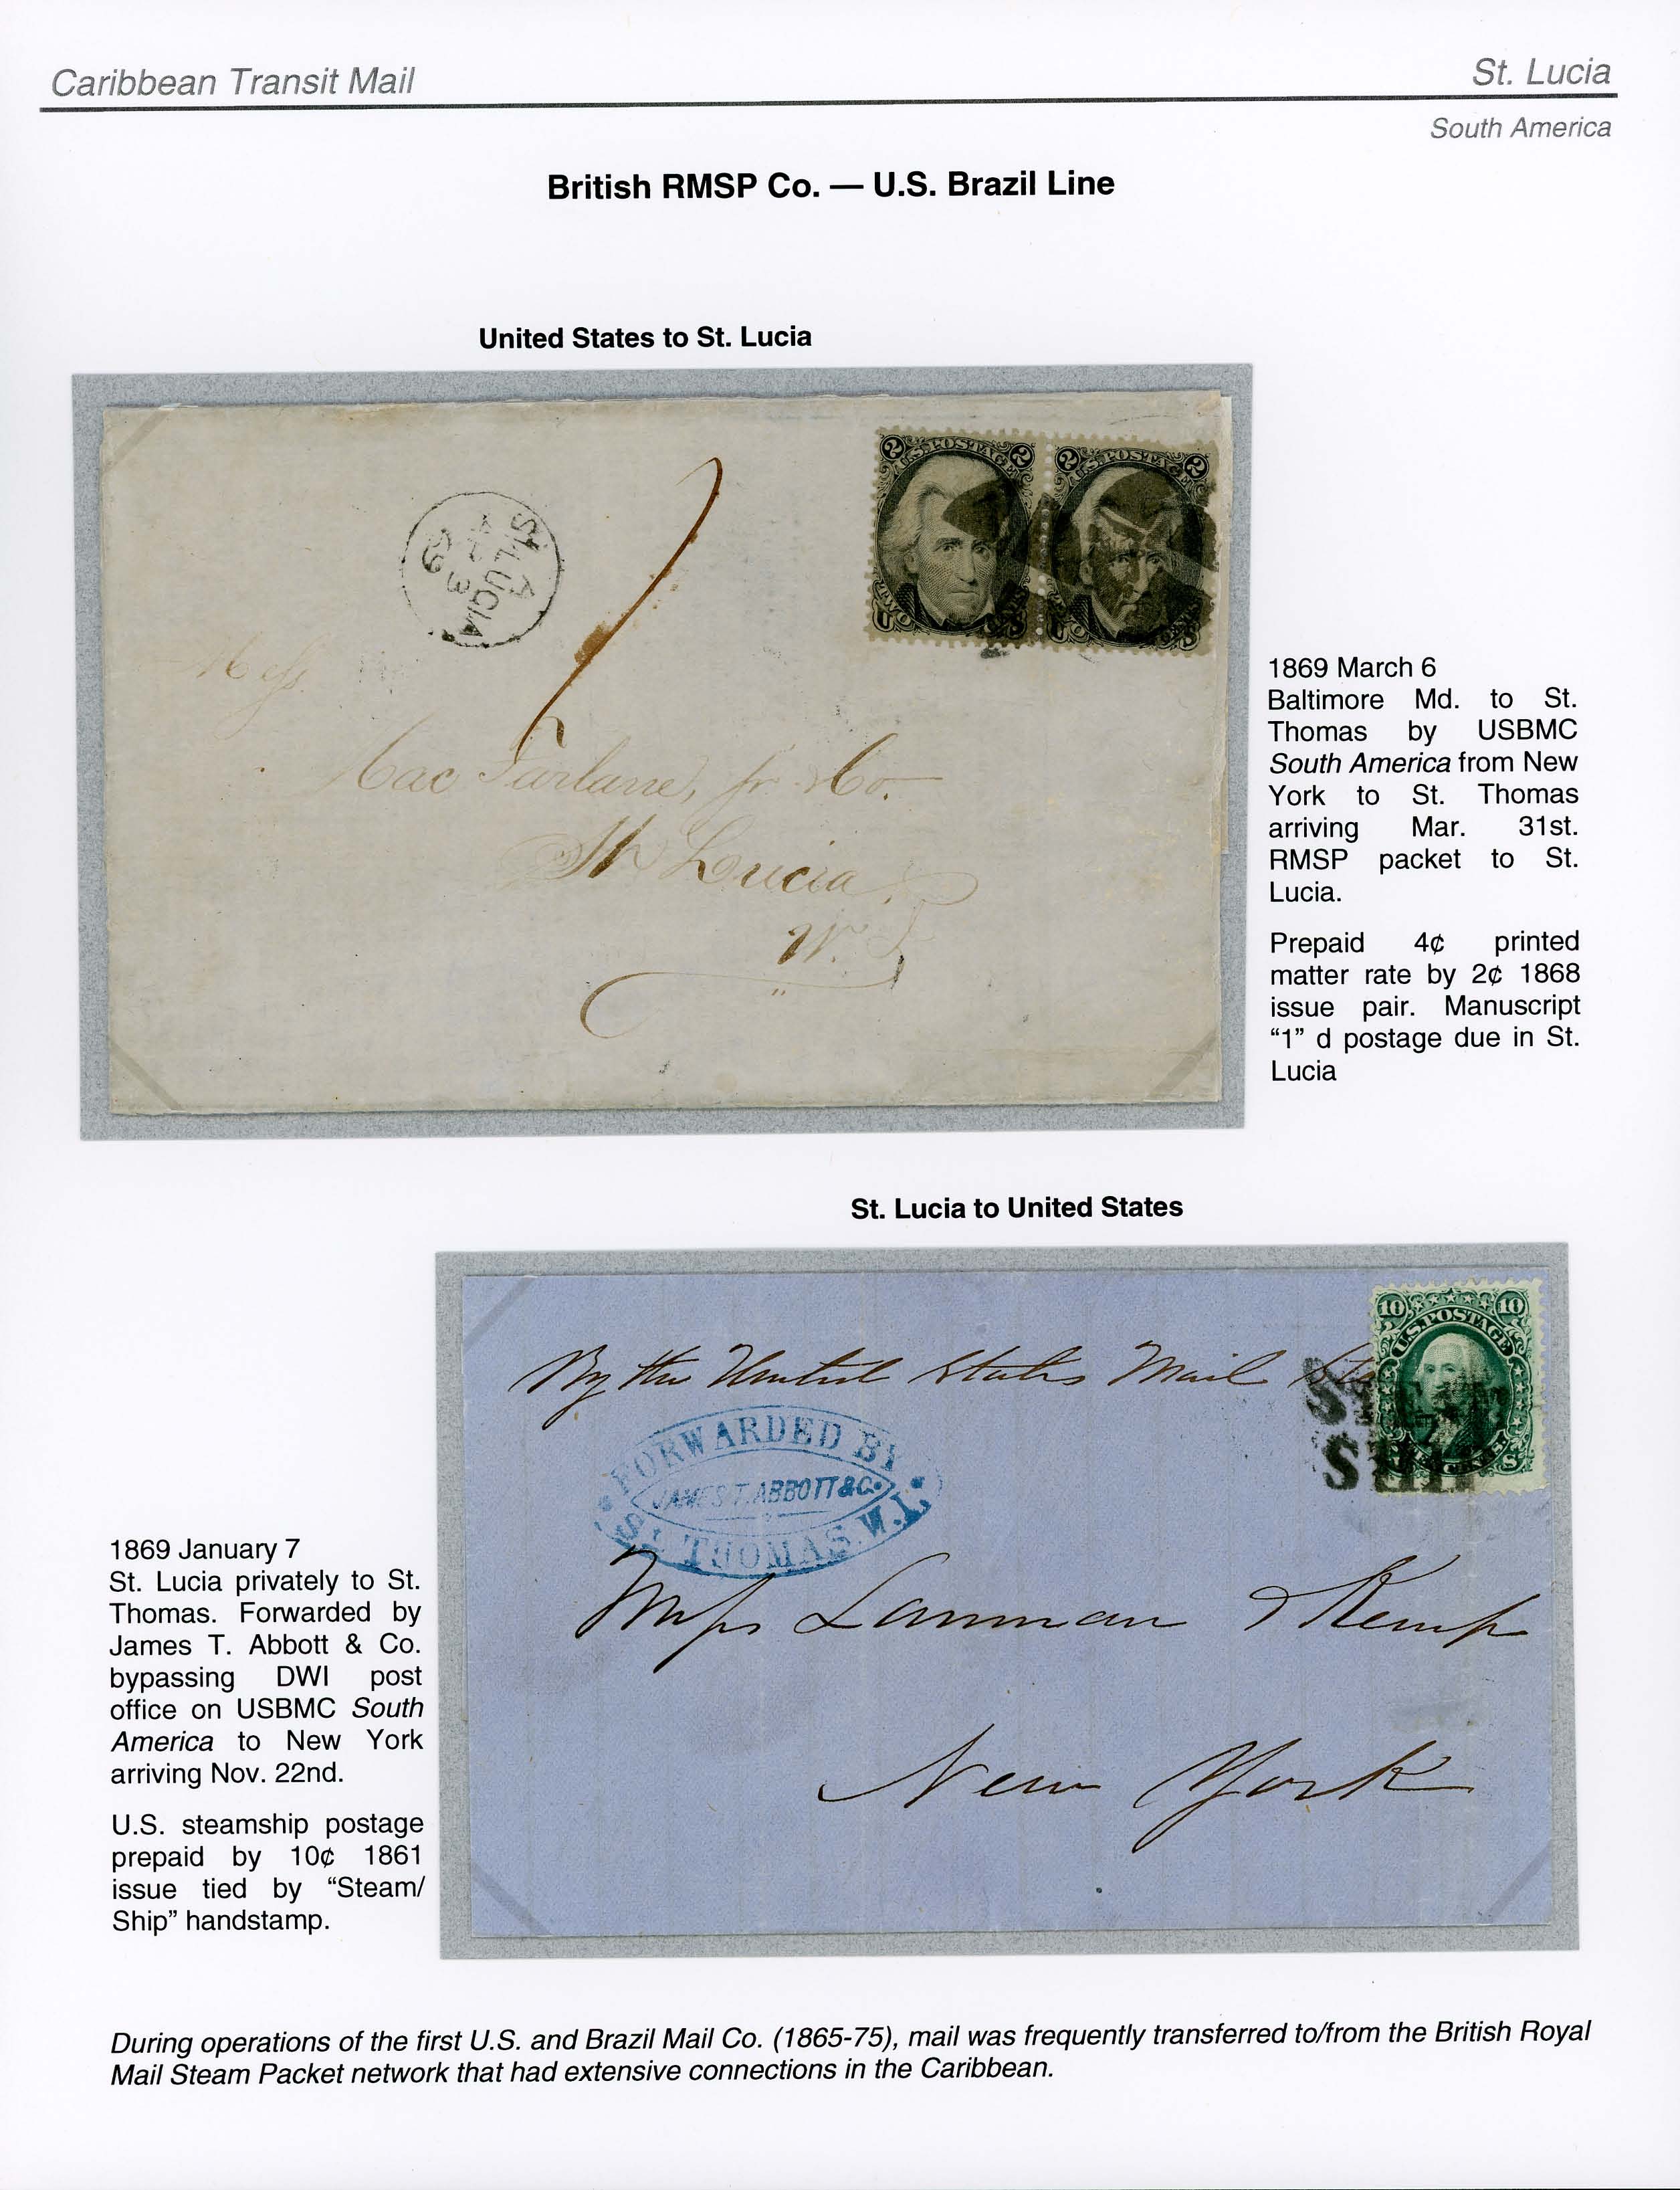 Caribbean Transit Mail
St. Lucia
South America
British RMSP Co. — U.S. Brazil Line
United States to St. Lucia
2 U.S. POSTAGE 2
2 U.S. POSTAGE 2
ST. LUCIA
A
3
69
1
Mess.
Mac Farlane, Jr & Co.
St Lucia,
W. I.
1869 March 6
Baltimore Md. to St.
Thomas by USBMC
South America from New
York to St. Thomas
arriving Mar. 31st.
RMSP packet to St.
Lucia.
Prepaid 4¢ printed
matter rate by 2¢ 1868
issue pair. Manuscript
“1” d postage due in St.
Lucia
St. Lucia to United States
10 U.S. POSTAGE 10
By the United States Mail
STEAM
SHIP
FORWARDED BY
JAMES T. ABBOTT & Co.
ST. THOMAS. W.I.
Messrs Lanman & Kemp
New York
1869 January 7
St. Lucia privately to St.
Thomas. Forwarded by
James T. Abbott & Co.
bypassing DWI post
office on USBMC South
America to New York
arriving Nov. 22nd.
U.S. steamship postage
prepaid by 10¢ 1861
issue tied by “Steam/
Ship” handstamp.
During operations of the first U.S. and Brazil Mail Co. (1865-75), mail was frequently transferred to/from the British Royal
Mail Steam Packet network that had extensive connections in the Caribbean.